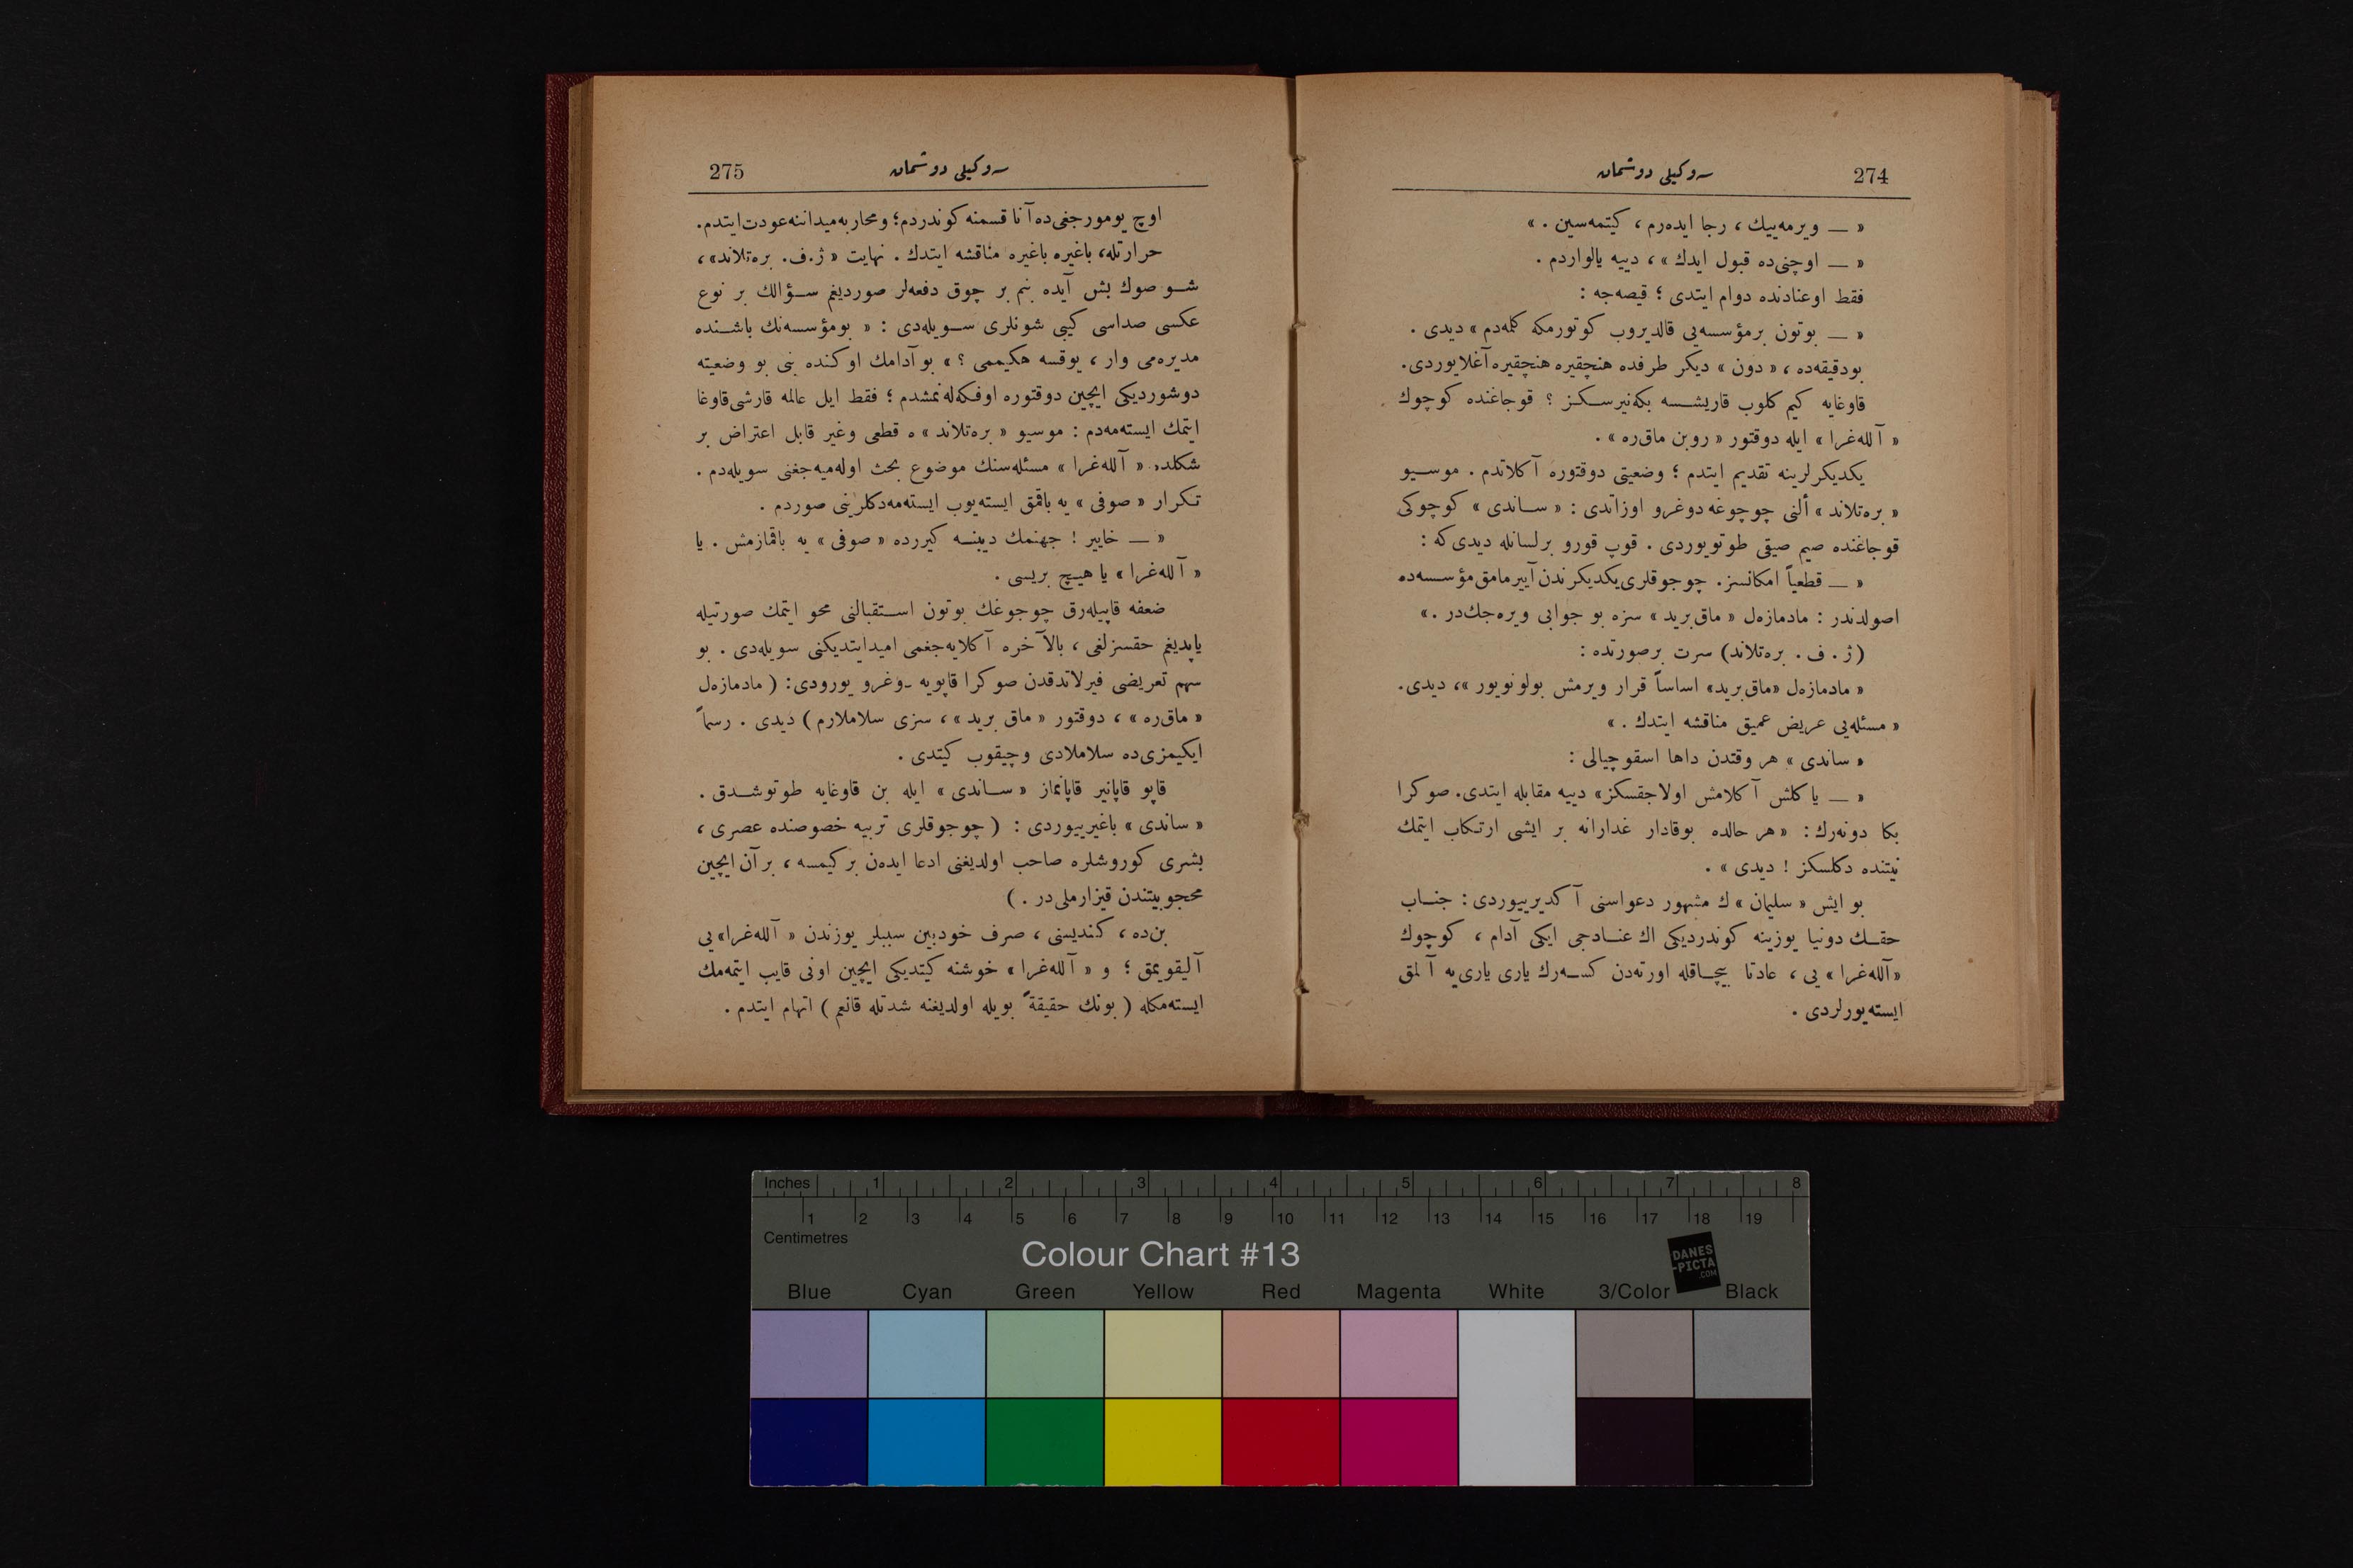 274
سه‌وکیلی دوشمان
« — ویرمه‌ییك ، رجا ایده‌رم ، کیتمه‌سین . »
« — اوچنی‌ده قبول ایدك » ، دییه یالواردم .
فقط اوعنادنده دوام ایتدی ؛ قیصه‌جه :
« — بوتون برمؤسسه‌یی قالدیروب کوتورمکه کلمه‌دم » دیدی .
بودقیقه‌ده ، « دون » دیکر طرفده هنچقیره هنچقیره آغلایوردی.
قاوغایه کیم کلوب قاریشسه بکه‌نیرسکز ؟ قوجاغنده کوچوك
« آلله‌غرا » ایله دوقتور « روبن ماق‌ره » .
یکدیکرلرینه تقدیم ایتدم ؛ وضعیتی دوقتوره آکلاتدم . موسیو
« بره‌تلاند » ألنی چوچوغه دوغرو اوزاتدی : « ساندی » کوچوکی
قوجاغنده صیم صیقی طوتویوردی . قوپ قورو برلسانله دیدی که :
« — قطعیاً امکانسز. چوجوقلری یکدیکرندن آییرمامق مؤسسه‌ده
اصولدندر : مادمازه‌ل « ماق‌برید » سزه بو جوابی ویره‌جك‌در . »
(ژ . ف . بره‌تلاند) سرت برصورتده :
« مادمازه‌ل «ماق‌برید» اساساً قرار ویرمش بولونویور »، دیدی.
« مسئله‌یی عریض عمیق مناقشه ایتدك . »
« ساندی » هر وقتدن داها اسقوچیالی :
« — یاکلش آکلامش اولاجقسکز» دییه مقابله ایتدی. صوکرا
بکا دونه‌رك : « هر حالده بوقادار غدارانه بر ایشی ارتکاب ایتمك
نیتنده دکلسکز ! دیدی » .
بو ایش « سلیمان » ك مشهور دعواسنی آکدیرییوردی : جناب
حقك دونیا یوزینه کوندردیکی اك عنادجی ایکی آدام ، کوچوك
«آلله‌غرا » یی ، عادتا بیچاقله اورته‌دن کسه‌رك یاری یاری‌یه آلمق
ایسته‌یورلردی .
275
سه‌وکیلی دوشمان
اوچ یومورجغی‌ده آنا قسمنه کوندردم؛ ومحاربه‌میداننه‌عودت‌ایتدم.
حرارتله، باغیره باغیره مناقشه ایتدك . نهایت « ژ.ف. بره‌تلاند» ،
شو صوك بش آیده بنم بر چوق دفعه‌لر صوردیغم سؤالك بر نوع
عکسی صداسی کیبی شونلری سویله‌دی : « بومؤسسه‌نك باشنده
مدیره‌می وار ، یوقسه هکیممی ؟ » بو آدامك اوکنده بنی بو وضعیته
دوشوردیکی ایچین دوقتوره اوفکه‌له‌نمشدم ؛ فقط ایل عالمه قارشی‌قاوغا
ایتمك ایسته‌مه‌دم : موسیو « بره‌تلاند » ه قطعی وغیر قابل اعتراض بر
شکلده « آلله‌غرا » مسئله‌سنك موضوع بحث اوله‌میه‌جغنی سویله‌دم .
تکرار « صوفی » یه باقمق ایسته‌یوب ایسته‌مه‌دکلرینی صوردم .
« — خایر ! جهنمك دیبنسه کیررده « صوفی » یه باقمازمش . یا
« آلله‌غرا » یا هیچ بریسی .
ضعفه قاپیله‌رق چوجوغك بوتون استقبالنی محو ایتمك صورتیله
یاپدیغم حقسزلغی ، بالآخره آکلایه‌جغمی امیدایتدیکنی سویله‌دی . بو
سهم تعریضی فیرلاتدقدن صوکرا قاپویه دوغرو یورودی: ( مادمازه‌ل
« ماق‌ره » ، دوقتور « ماق برید » ، سزی سلاملارم ) دیدی . رسماً
ایکیمزی‌ده سلاملادی وچیقوب کیتدی .
قاپو قاپانیر قاپانماز « ساندی » ایله بن قاوغایه طوتوشدق .
« ساندی » باغیرییوردی : ( چوجوقلری تربیه خصوصنده عصری ،
بشری کوروشلره صاحب اولدیغنی ادعا ایده‌ن برکیمسه ، بر آن ایچین
محجوبیتندن قیزارملی‌در . )
بن‌ده ، کندیسنی ، صرف خودبین سببلر یوزندن « آلله‌غرا» یی
آلیقویمق ؛ و « آلله‌غرا » خوشنه کیتدیکی ایچین اونی قایب ایتمه‌مك
ایسته‌مکله ( بونك حقیقةً بویله اولدیغنه شدتله قانعم ) اتهام ایتدم .
Inches 1 2 3 4 5 6 7 8
1 2 3 4 5 6 7 8 9 10 11 12 13 14 15 16 17 18 19
Centimetres
Colour Chart #13
DANES
-PICTA
.COM
Blue Cyan Green Yellow Red Magenta White 3/Color Black